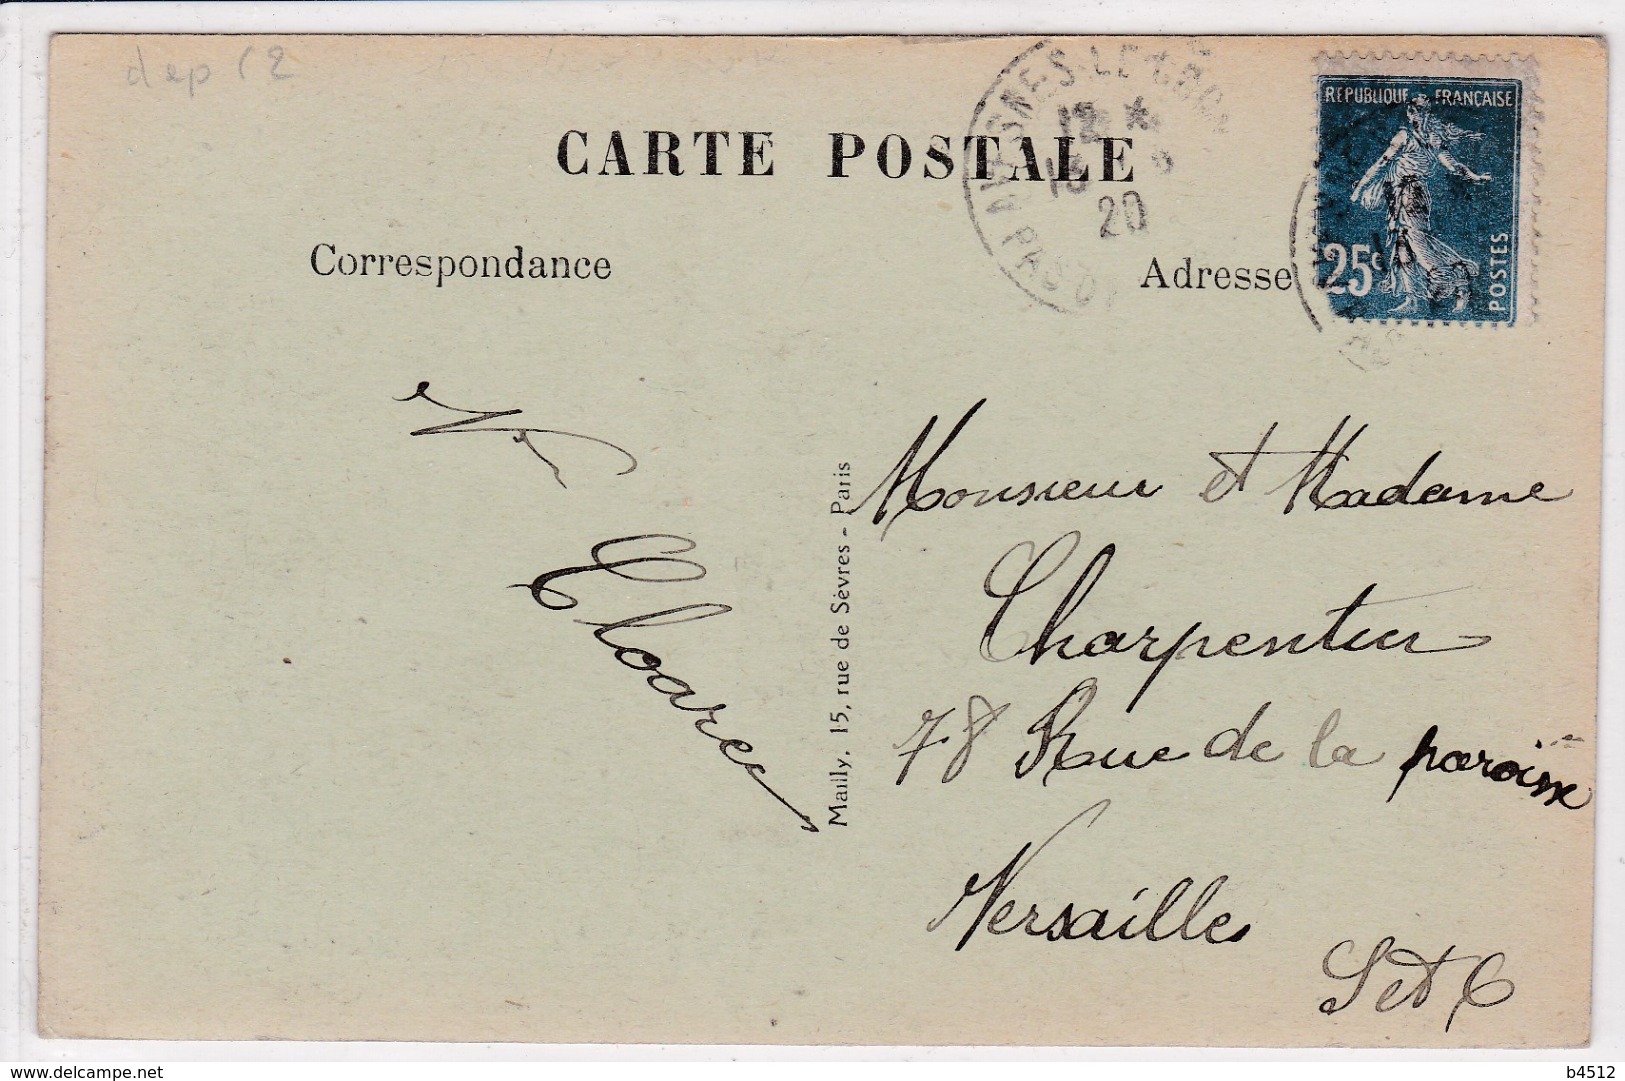 dep 62
CARTE POSTALE
AVESNES-LE-COMTE
12 *
13 8
20
PAS DE
REPUBLIQUE FRANÇAISE
25c
POSTES
Correspondance
Adresse
Cloarec
Mailly, 15, rue de Sèvres - Paris
Monsieur et Madame
Charpentier
78 Rue de la paroisse
Versailles
S et O
www.delcampe.net
b4512